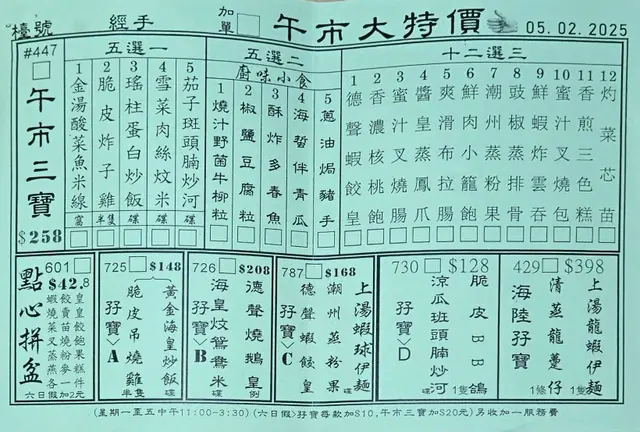 檯號
經手
加單
午市大特價
05.02.2025
#447
午市三寶
$258
五選一
1 金湯酸菜魚米線 窩
2 脆皮炸子雞 半隻
3 瑤柱蛋白炒飯 碟
4 雪菜肉絲炆米 碟
5 茄子斑頭腩炒河 碟
五選二
廚味小食
1 燒汁野菌牛柳粒
2 椒鹽豆腐粒
3 酥炸多春魚
4 海蜇伴青瓜
5 蔥油焗豬手
十二選三
1 德聲蝦餃皇
2 香濃核桃飽
3 蜜汁叉燒腸
4 醬皇蒸鳳爪
5 爽滑布拉腸
6 鮮肉小籠飽
7 潮州蒸粉果
8 豉椒蒸排骨
9 鮮蝦炸雲吞
10 蜜汁叉燒包
11 香煎三色糕
12 灼菜芯苗
601
點心拼盆
$42.8
蝦餃皇
燒賣皇
六日假加2元
725 $148
孖寶 A
脆皮吊燒雞 半隻
黃金海皇炒飯 碟
726 $208
孖寶 B
海皇炆鴛鴦米 碟
德聲燒鵝皇 例
787 $168
孖寶 C
德聲蝦餃皇
潮州蒸粉果
上湯蝦球伊麵
730 $128
孖寶 D
涼瓜斑頭腩炒河 碟
脆皮BB鴿 1隻
429 $398
海陸孖寶
清蒸龍躉仔 1條
上湯龍蝦伊麵 1隻
(星期一至五中午11:00-3:30) (六日假)孖寶每款加$10,午市三寶加$20元) 另收加一服務費